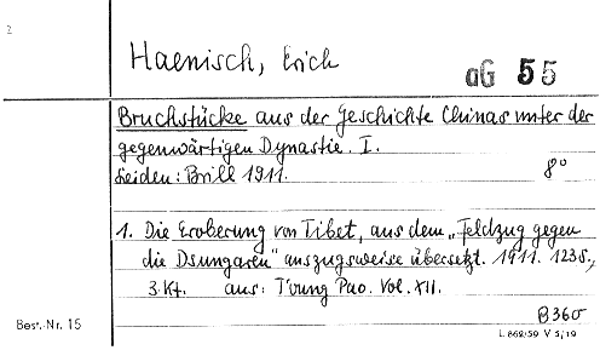 2
Haenisch, Erich
aG 55
Bruchstücke aus der Geschichte Chinas unter der
gegenwärtigen Dynastie. I.
Leiden: Brill 1911.
8°
1. Die Eroberung von Tibet, aus dem „Feldzug gegen
die Dsungaren" auszugsweise übersetzt. 1911. 123S.,
3 Kt. aus: T'oung Pao. Vol. XII.
B360
Best.-Nr. 15
L 868/59 V 5/19